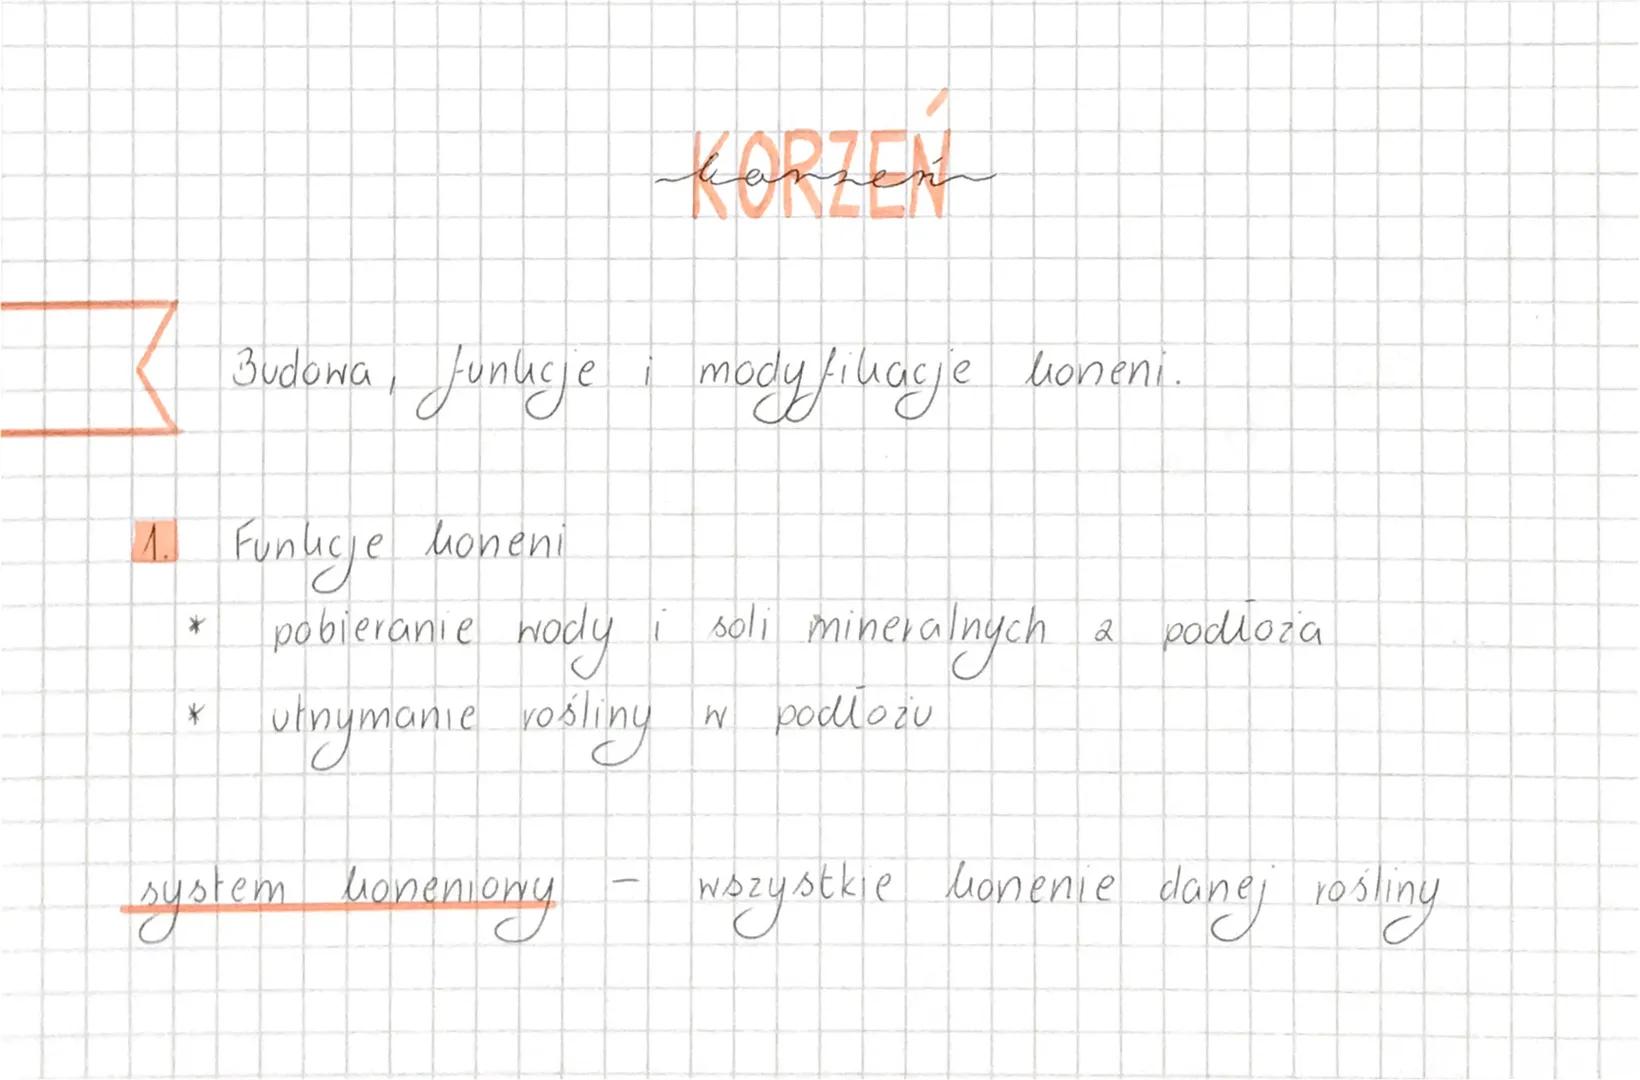 KORZEŃ
korzeń
Budowa, funkcje i modyfikacje korzeni.
1. Funkcje korzeni
* pobieranie wody i soli mineralnych z podłoża
* utrzymanie rośliny w podłożu
system korzeniowy - wszystkie korzenie danej rośliny